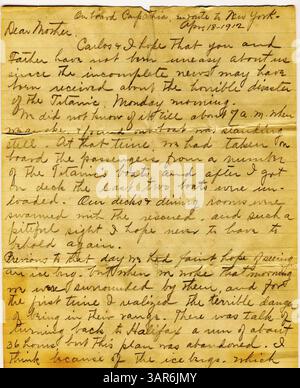 On board Carpathia, enroute to New York.
Apr. 18-1912
Dear Mother,
Carlos & I hope that you and
Father have not been uneasy about us
since the incomplete news may have
been received about the horrible disaster
of the Titanic, Monday morning.
We did not know of it till about 7 a.m. when
we awoke & found our boat was standing
still. At that time, we had taken on
board the passengers from a number
of the Titanic's boats, and after I got
on deck the last two boats were un-
loaded. Our decks & dining rooms were
swarmed with the rescued and such a
pitiful sight I hope never to have to
behold again.
Previous to that day we had faint hope of seeing
an ice berg. but when we rose that morning
we were surrounded by them, and for
the first time I realized the terrible danger
of being in their range. There was talk of
turning back to Halifax a run of about
36 hours but this plan was abandoned. I
think because of the ice bergs. which
alamy
Image ID: 3AR6JMY
www.alamy.com